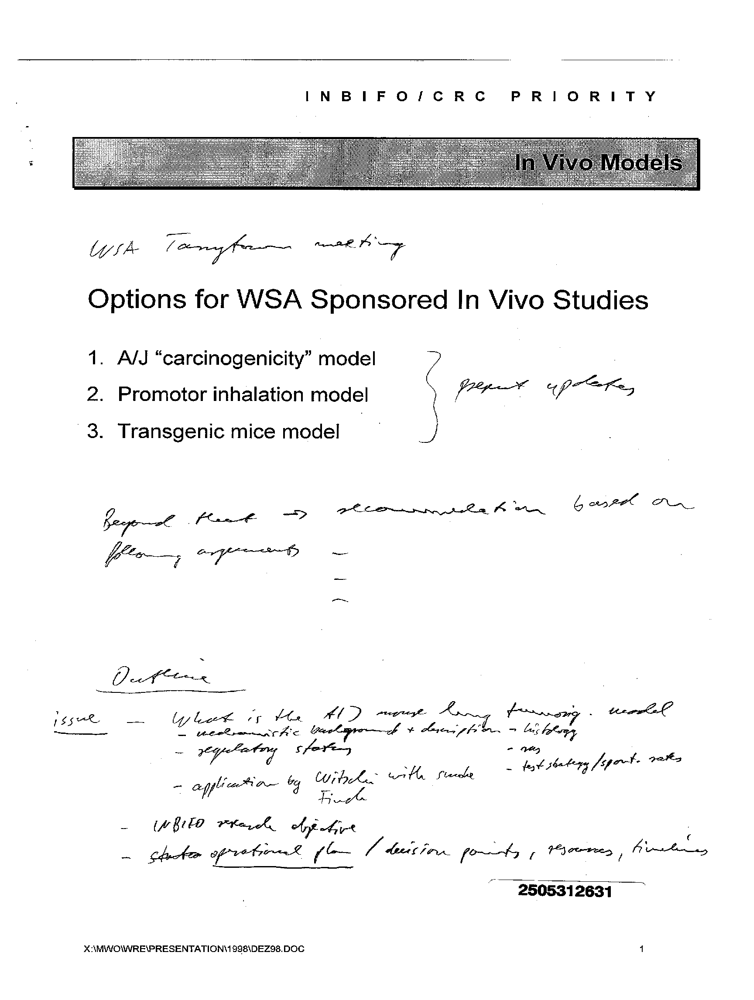 INBIFO/CRC PRIORITY
In Vivo Models
WSA Tarrytown meeting
Options for WSA Sponsored In Vivo Studies
1. A/J “carcinogenicity” model
2. Promotor inhalation model
3. Transgenic mice model
present updates
Beyond that → recommendation based on
following arguments –
–
–
Outline
issue – What is the A/J mouse lung tumorig. model
- mechanistic background + description - histology
- regulatory status - ras
- test strategy/spont. rates
- application by Witschi with smoke
Finch
- INBIFO research objective
- status operational plan / decision points, resources, timelines
2505312631
X:\MWO\WRE\PRESENTATION\1998\DEZ98.DOC 1